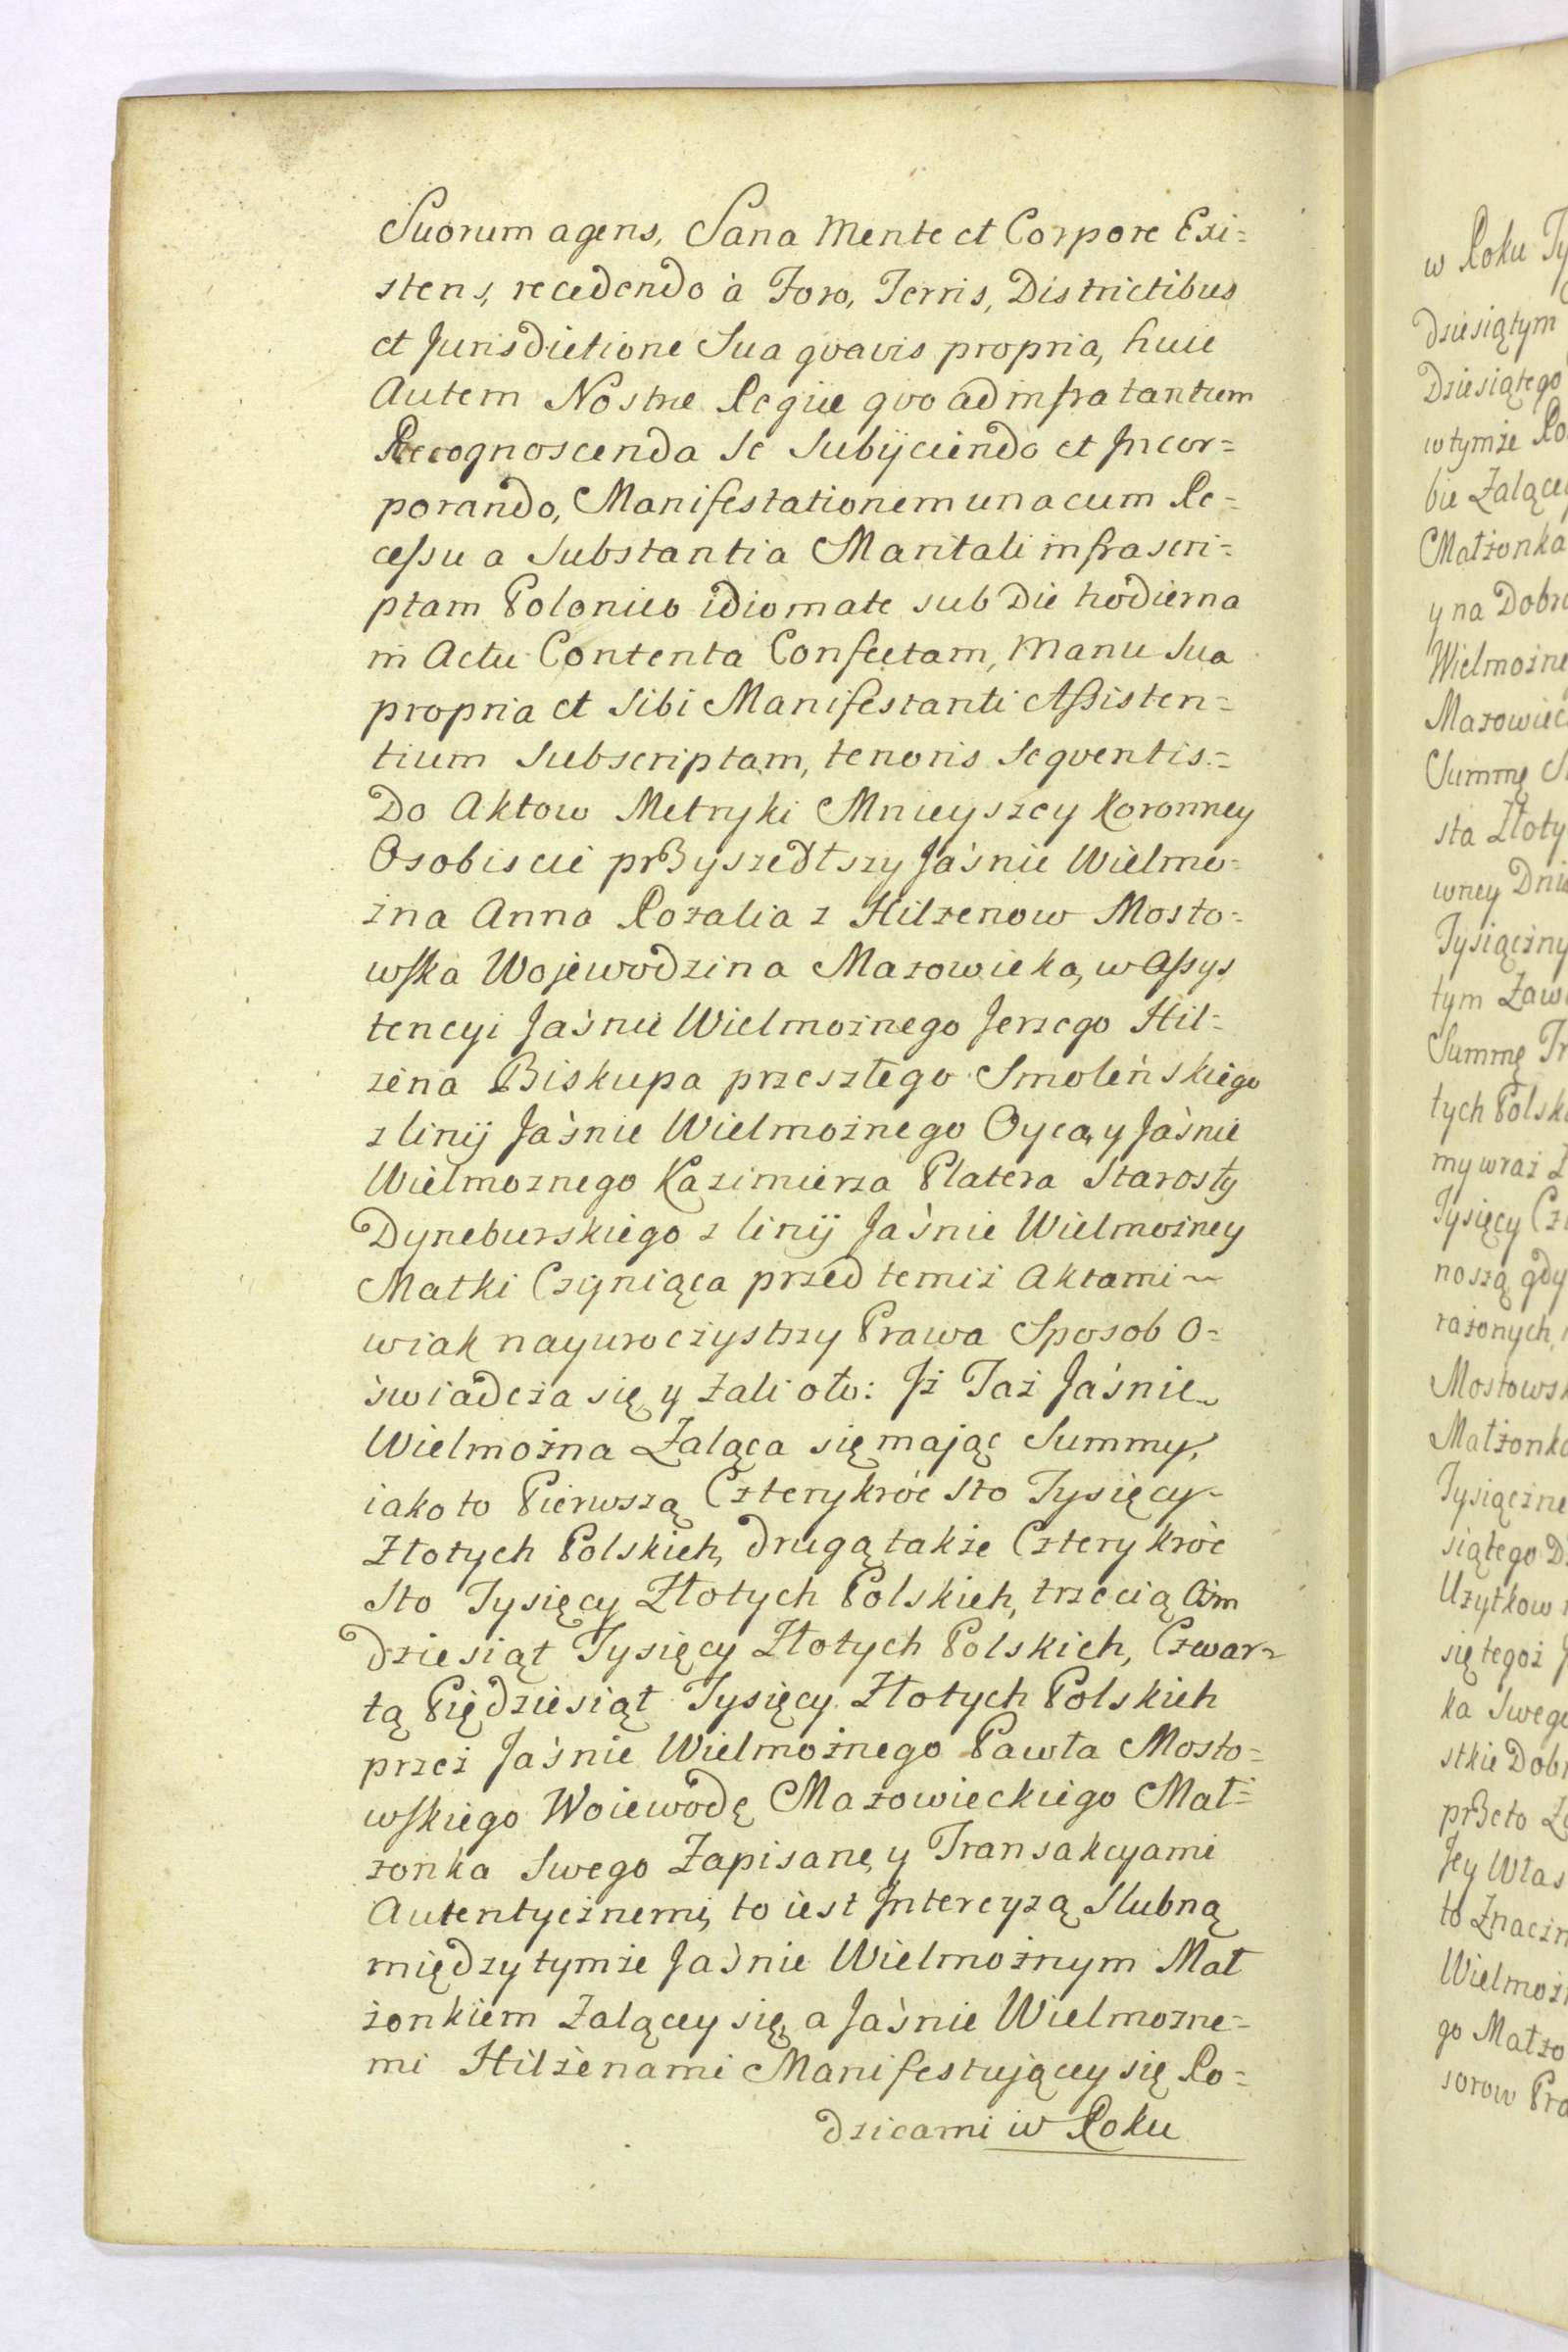 Suorum agens, Sana Mente et Corpore Exi=
stens, recedendo à Foro, Terris, Districtibus
et Jurisdictione Sua qvavis propria, huic
Autem Nostræ Regiæ qvo ad infra tantum
Recognoscenda Se Subijciendo et Jncor=
porando, Manifestationem una cum Re=
cessu a Substantia Maritali infrascri=
ptam Polonico idiomate sub Die hodierna
in Actu Contenta Confectam, Manu Sua
propria et Sibi Manifestanti Assisten=
tium Subscriptam, tenoris Seqventis.=
Do Aktow Metryki Mnieyszey Koronney
Osobiscie przyszedłszy Jaśnie Wielmo=
zna Anna Rozalia z Hilzenow Mosto=
wska Wojewodzina Mazowiecka, w Assys
tencyi Jaśnie Wielmożnego Jerzego Hil=
zena Biskupa przeszłego Smoleńskiego
z linij Jaśnie Wielmożnego Oyca, y Jaśnie
Wielmoznego Kazimierza Platera Starosty
Dyneburskiego z linij Jaśnie Wielmożney
Matki Czyniąca przed temiż Aktami ~
w iak nayuroczystszy Prawa Sposob O=
świadcza się y żali oto: Jż Taż Jaśnie
Wielmożna Żaląca się mając Summy,
iako to Pierwszą Czterykróć Sto Tysięcy
Złotych Polskich, drugą także Czterykróć
Sto Tysięcy Złotych Polskich, trzecią Ośm
dziesiąt Tysięcy Złotych Polskich, Czwar=
tą Piędziesiąt Tysięcy Złotych Polskich
przez Jaśnie Wielmożnego Pawła Mosto=
wskiego Woiewodę Mazowieckiego Mał=
zonka Swego Zapisane, y Transakcyami
Autentycznemi, to iest Jntercyzą Slubną
między tymże Jaśnie Wielmożnym Mał
żonkiem Żalącey się, a Jaśnie Wielmozne=
mi Hilżenami Manifestującey się Ro=
dzicami w Roku
w Roku
dziesiątym
Dziesiątego
w tymże
bie
Małżonka
y na
Wielmożne
Summę
sta
wney
tym
Summę
tych
my wraz
Tysięcy
noszą gdy
Małżonka
siątego
Uzytkow
się tegoż
ka Swego
stkie
przeto
Jey
to
go
sorow